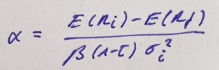 α = E(Ri) - E(Rf) / β (1-τ) σi²